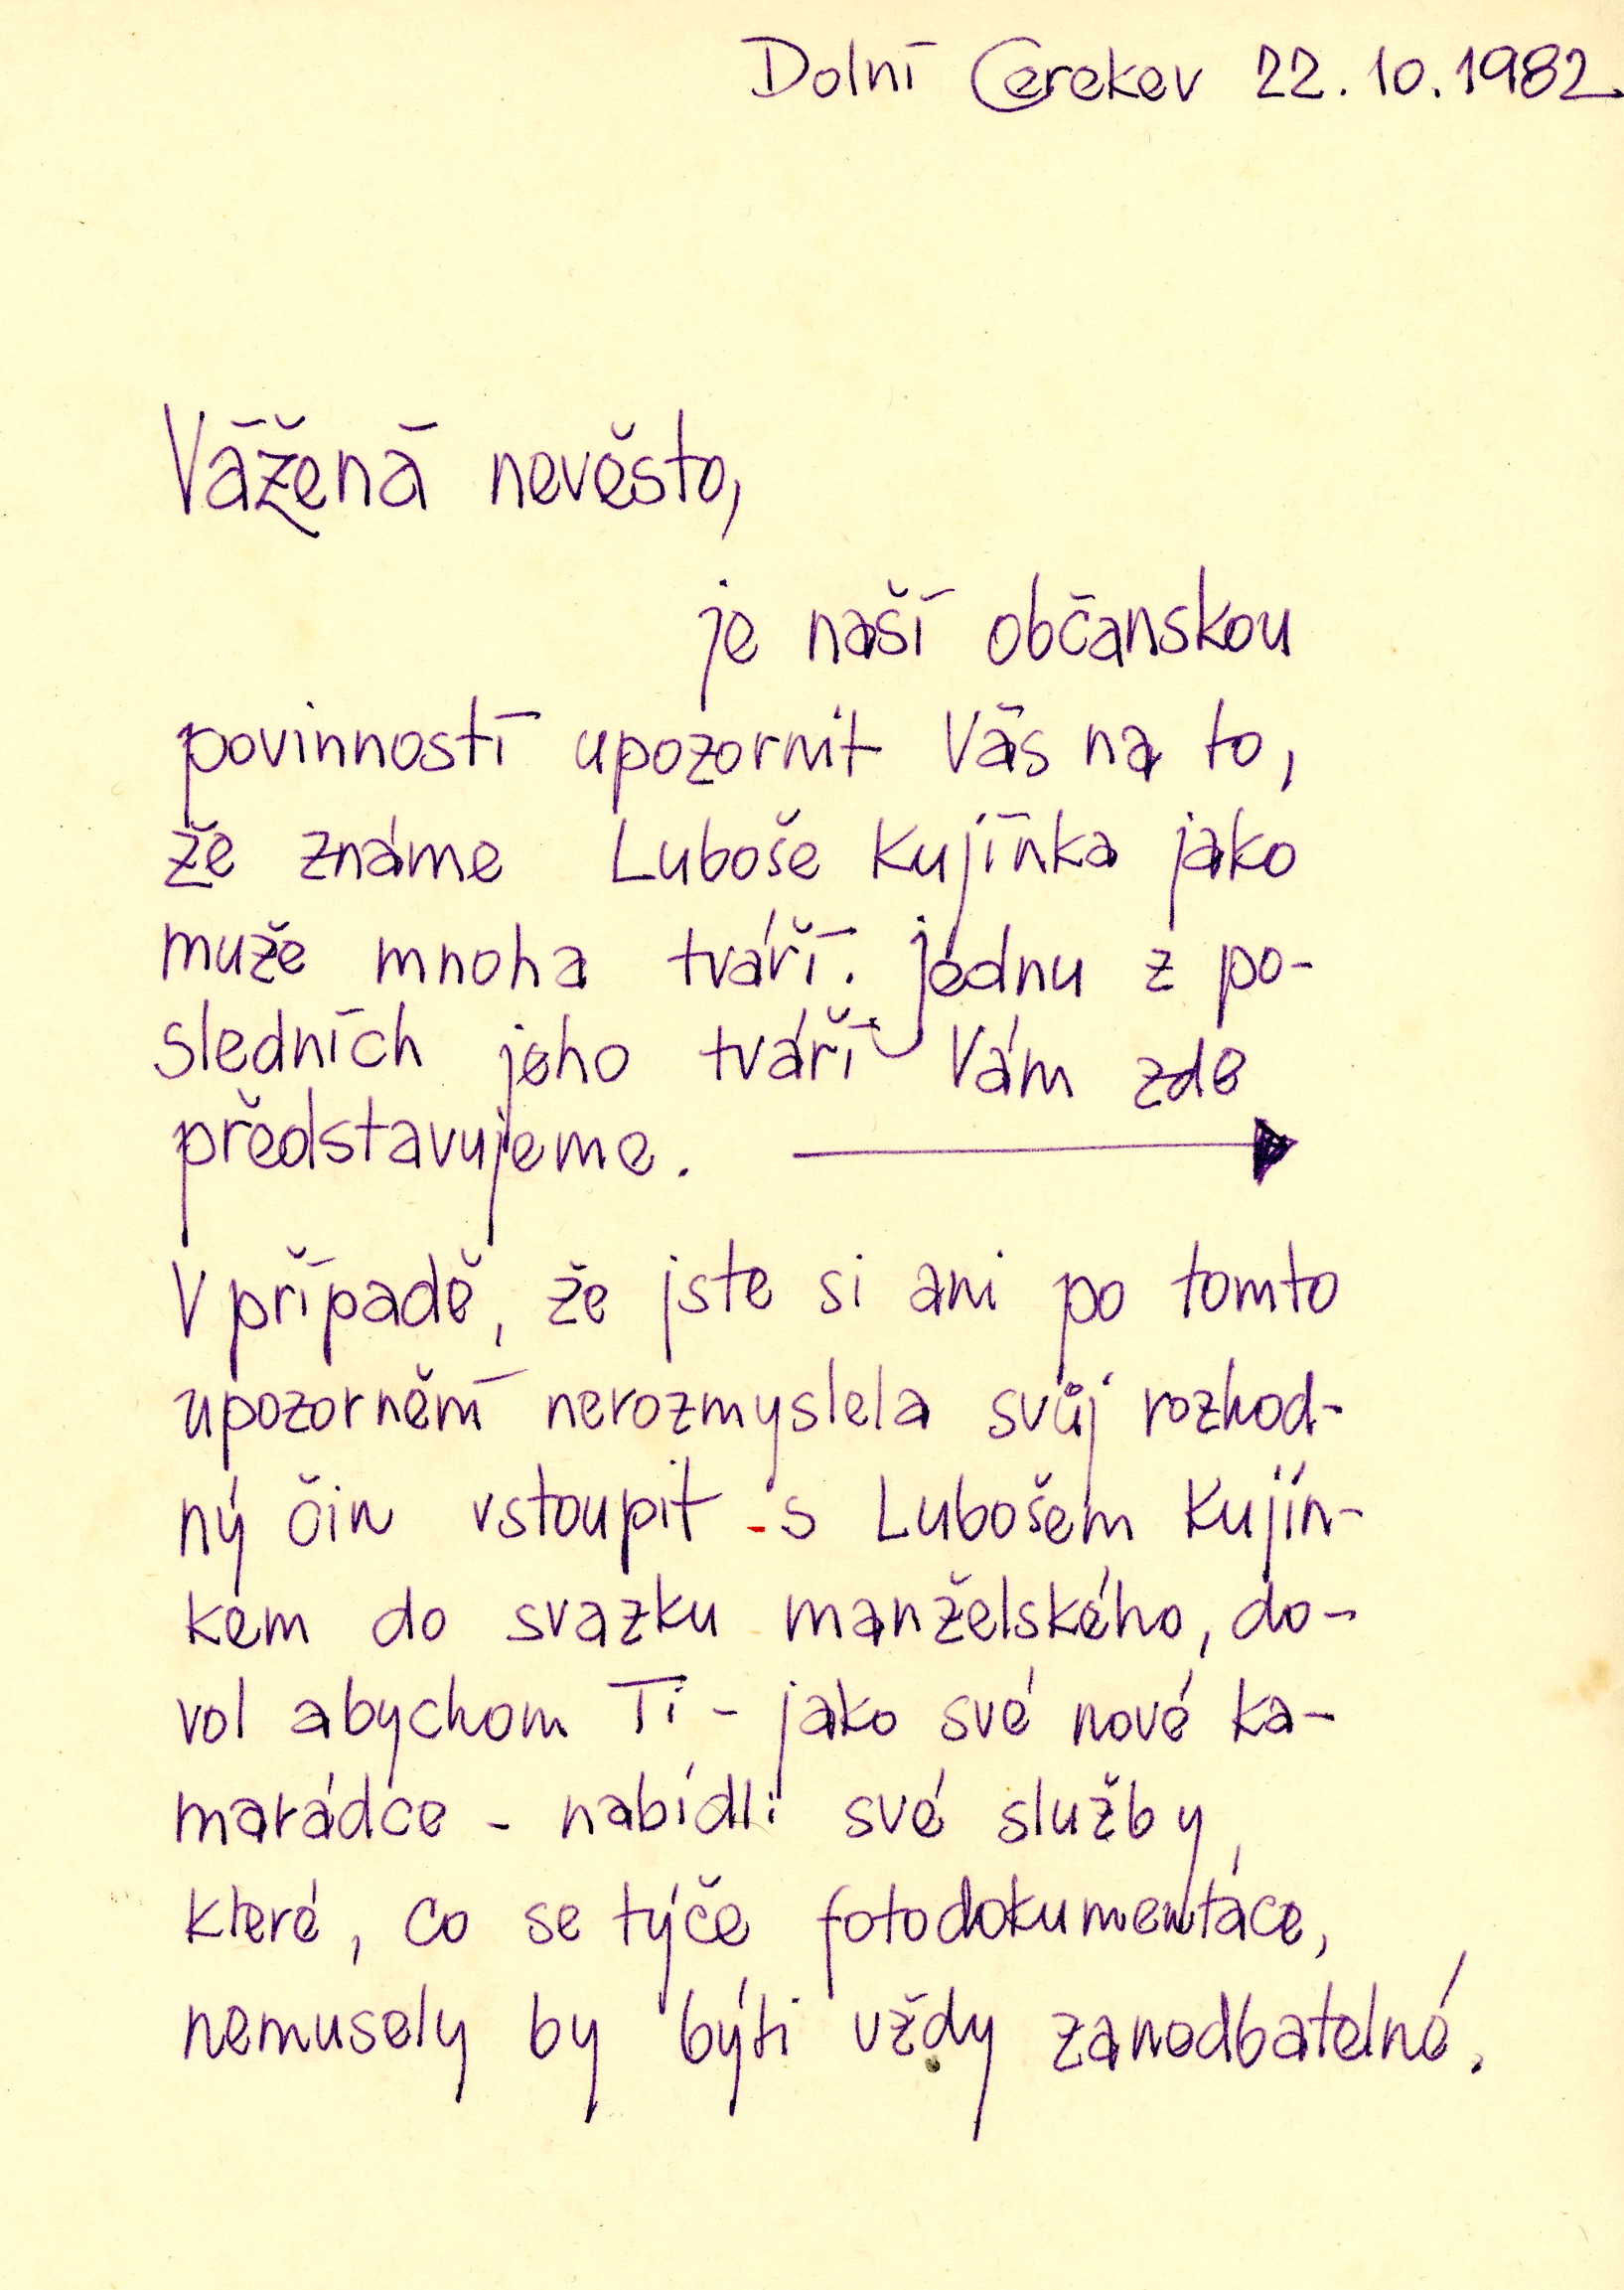 Dolní Cerekev 22.10.1982
Vážená nevěsto,
je naší občanskou
povinností upozornit Vás na to,
že známe Luboše Kujínka jako
muže mnoha tváří. jednu z po-
sledních jeho tváří Vám zde
představujeme.
V případě, že jste si ani po tomto
upozornění nerozmyslela svůj rozhod-
ný čin vstoupit s Lubošem Kujín-
kem do svazku manželského, do-
vol abychom Ti - jako své nové ka-
marádce - nabídli své služby,
které, co se týče fotodokumentáce,
nemusely by býti vždy zanedbatelné.